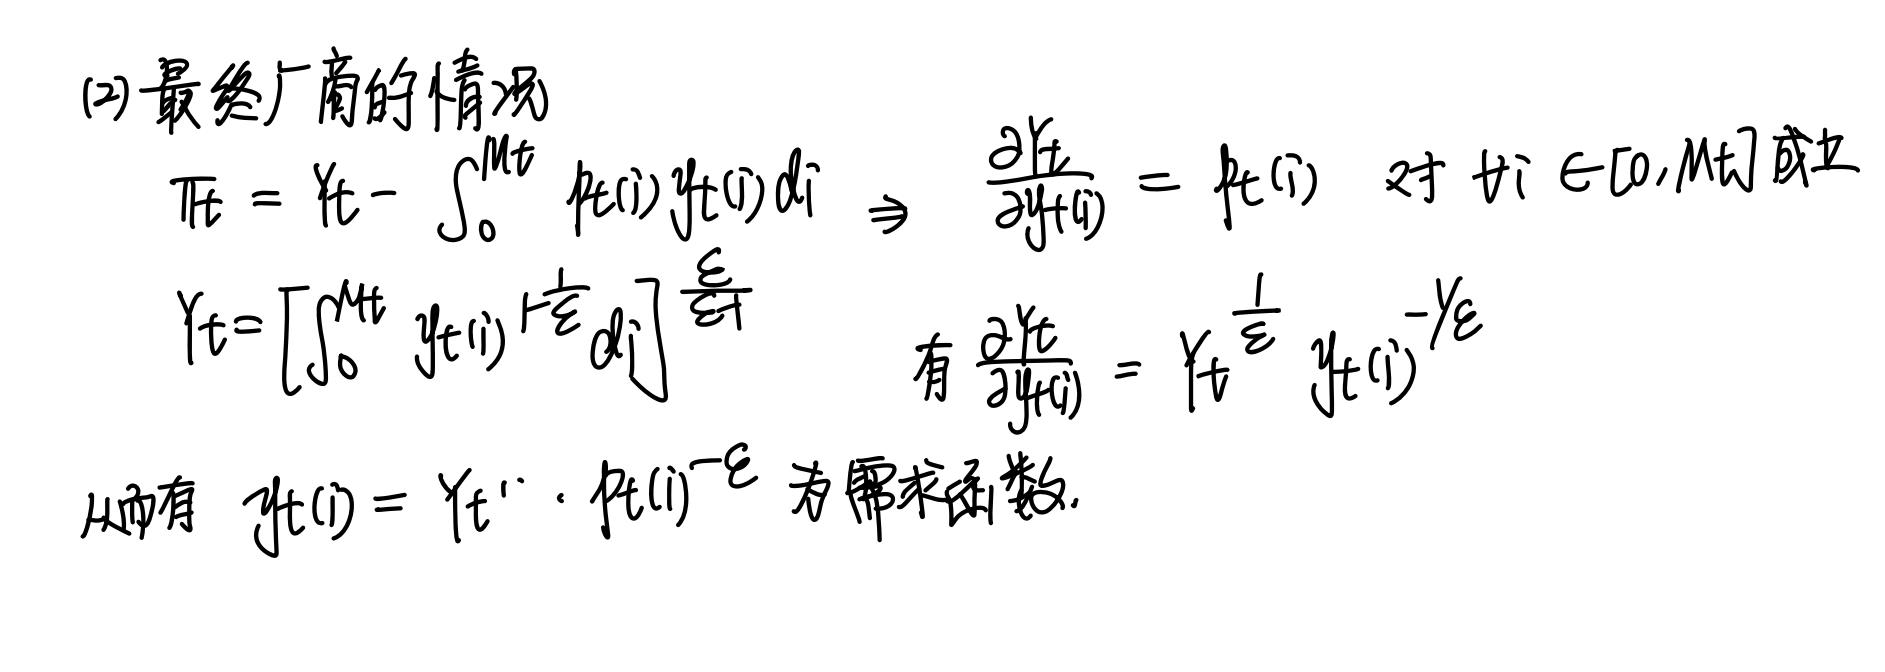 (2) 最终厂商的情况
πt = Yt - ∫₀^Mt pt(i) yt(i) di ⇒ ∂Yt/∂yt(i) = pt(i) 对 ∀i ∈ [0, Mt] 成立
Yt = [∫₀^Mt yt(i)^(1-1/ε) di]^(ε/(ε-1)) 有 ∂Yt/∂yt(i) = Yt^(1/ε) yt(i)^(-1/ε)
从而有 yt(i) = Yt · pt(i)^(-ε) 为需求函数.